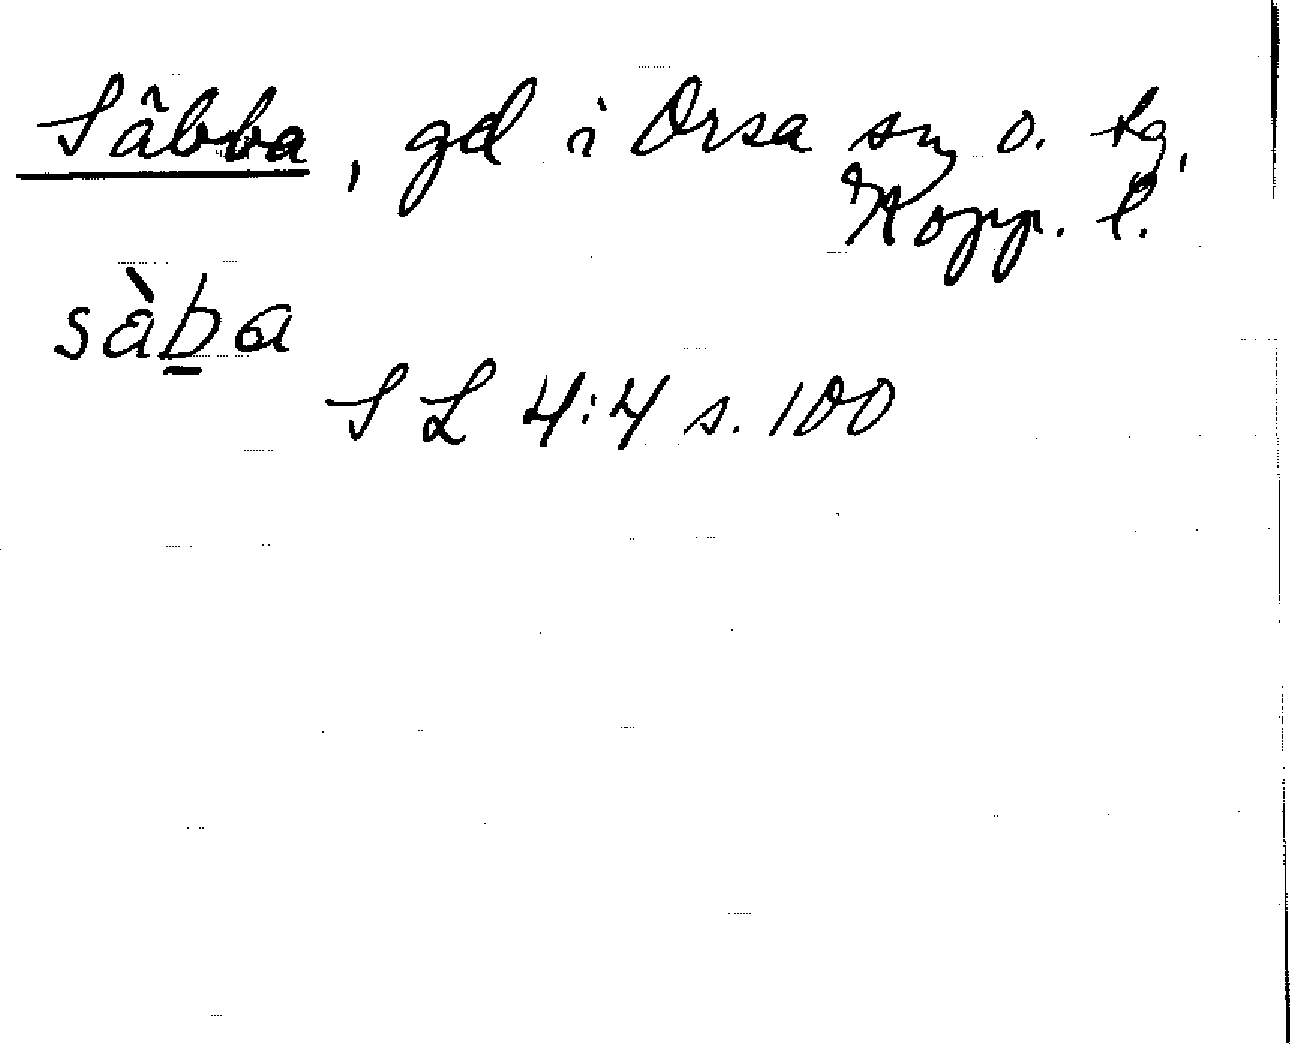 Sâbba, gd i Orsa sn o. tg,
Kopp. l.
sàb̲a
SL 4:4 s. 100